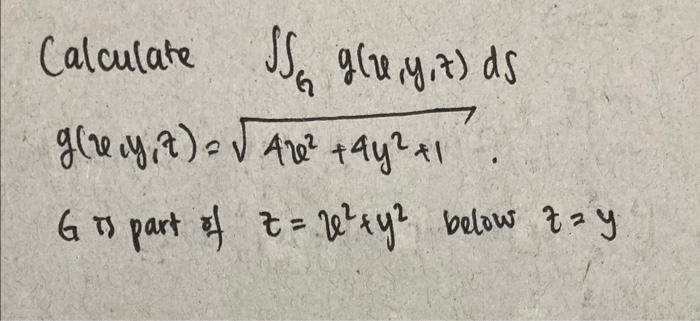 Calculate ∬_G g(x,y,z) dS
g(x,y,z) = √(4x² + 4y² + 1) .
G is part of z = x² + y² below z = y